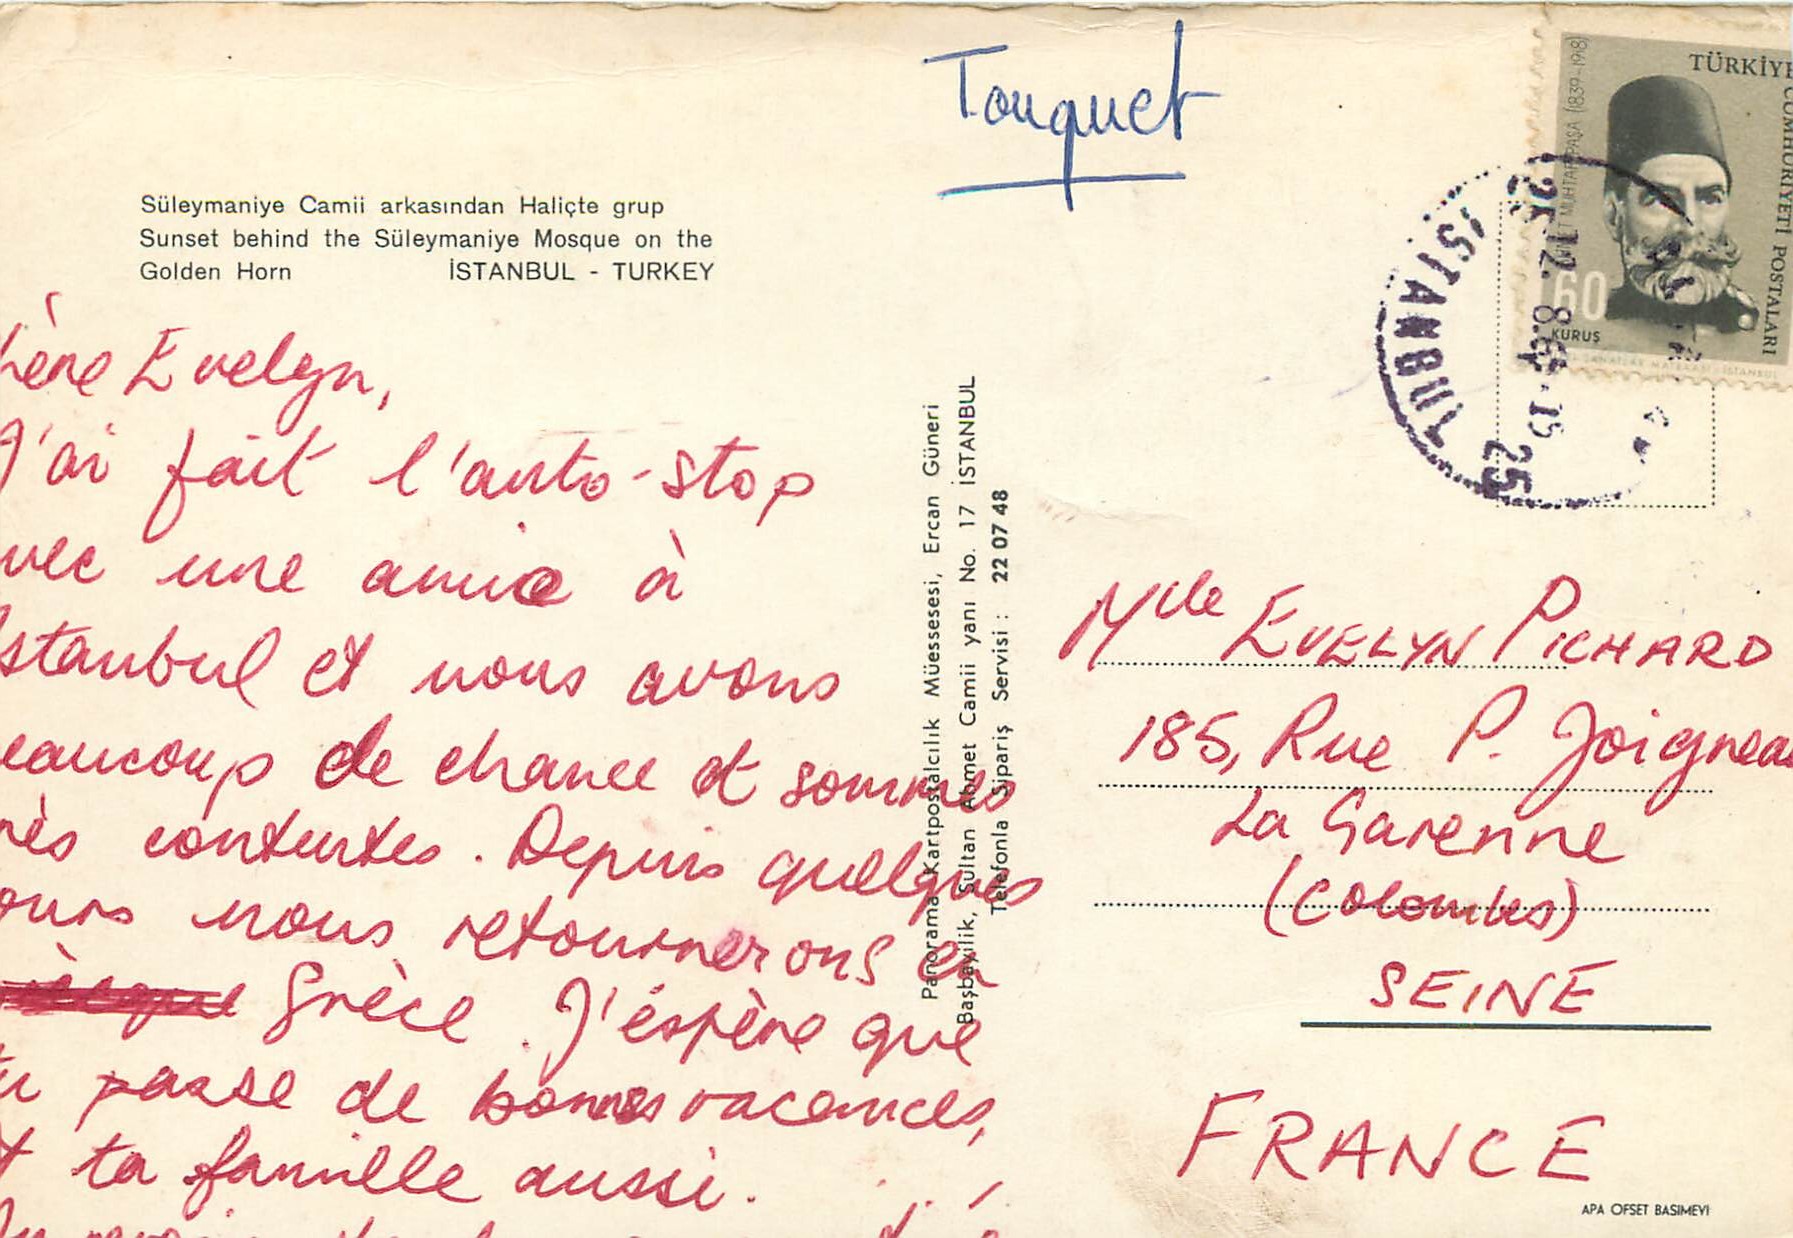 Süleymaniye Camii arkasından Haliçte grup
Sunset behind the Süleymaniye Mosque on the
Golden Horn İSTANBUL - TURKEY
hère Evelyn,
J'ai fait l'auto-stop
vec une amie à
Istanbul et nous avons
eaucoup de chance et sommes
rès contentes. Depuis quelques
ours nous retournerons en
Grèce. J'éspère que
tu passe de bonnes vacances,
et ta famille aussi.
Panorama Kartpostalcılık Müessesesi, Ercan Güneri
Başbayilik, Sultan Ahmet Camii yanı No. 17 İSTANBUL
Telefonla Sipariş Servisi : 22 07 48
Touquet
TÜRKİYE CUMHURİYETİ POSTALARI
MUHTAR PAŞA (1839-1918)
60
KURUŞ
İSTANBUL
25
Mlle EVELYN PICHARD
185, Rue P. Joigneau
La Garenne
(Colombes)
SEINE
FRANCE
APA OFSET BASIMEVİ